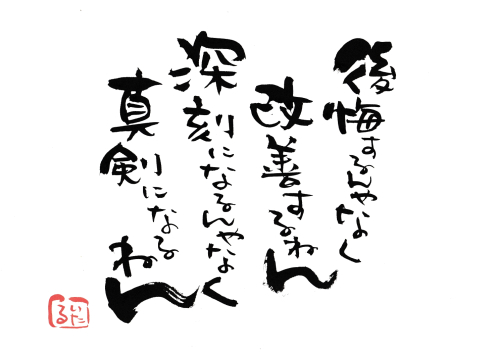 後悔するんやなく
改善するねん
深刻になるんやなく
真剣になるねん